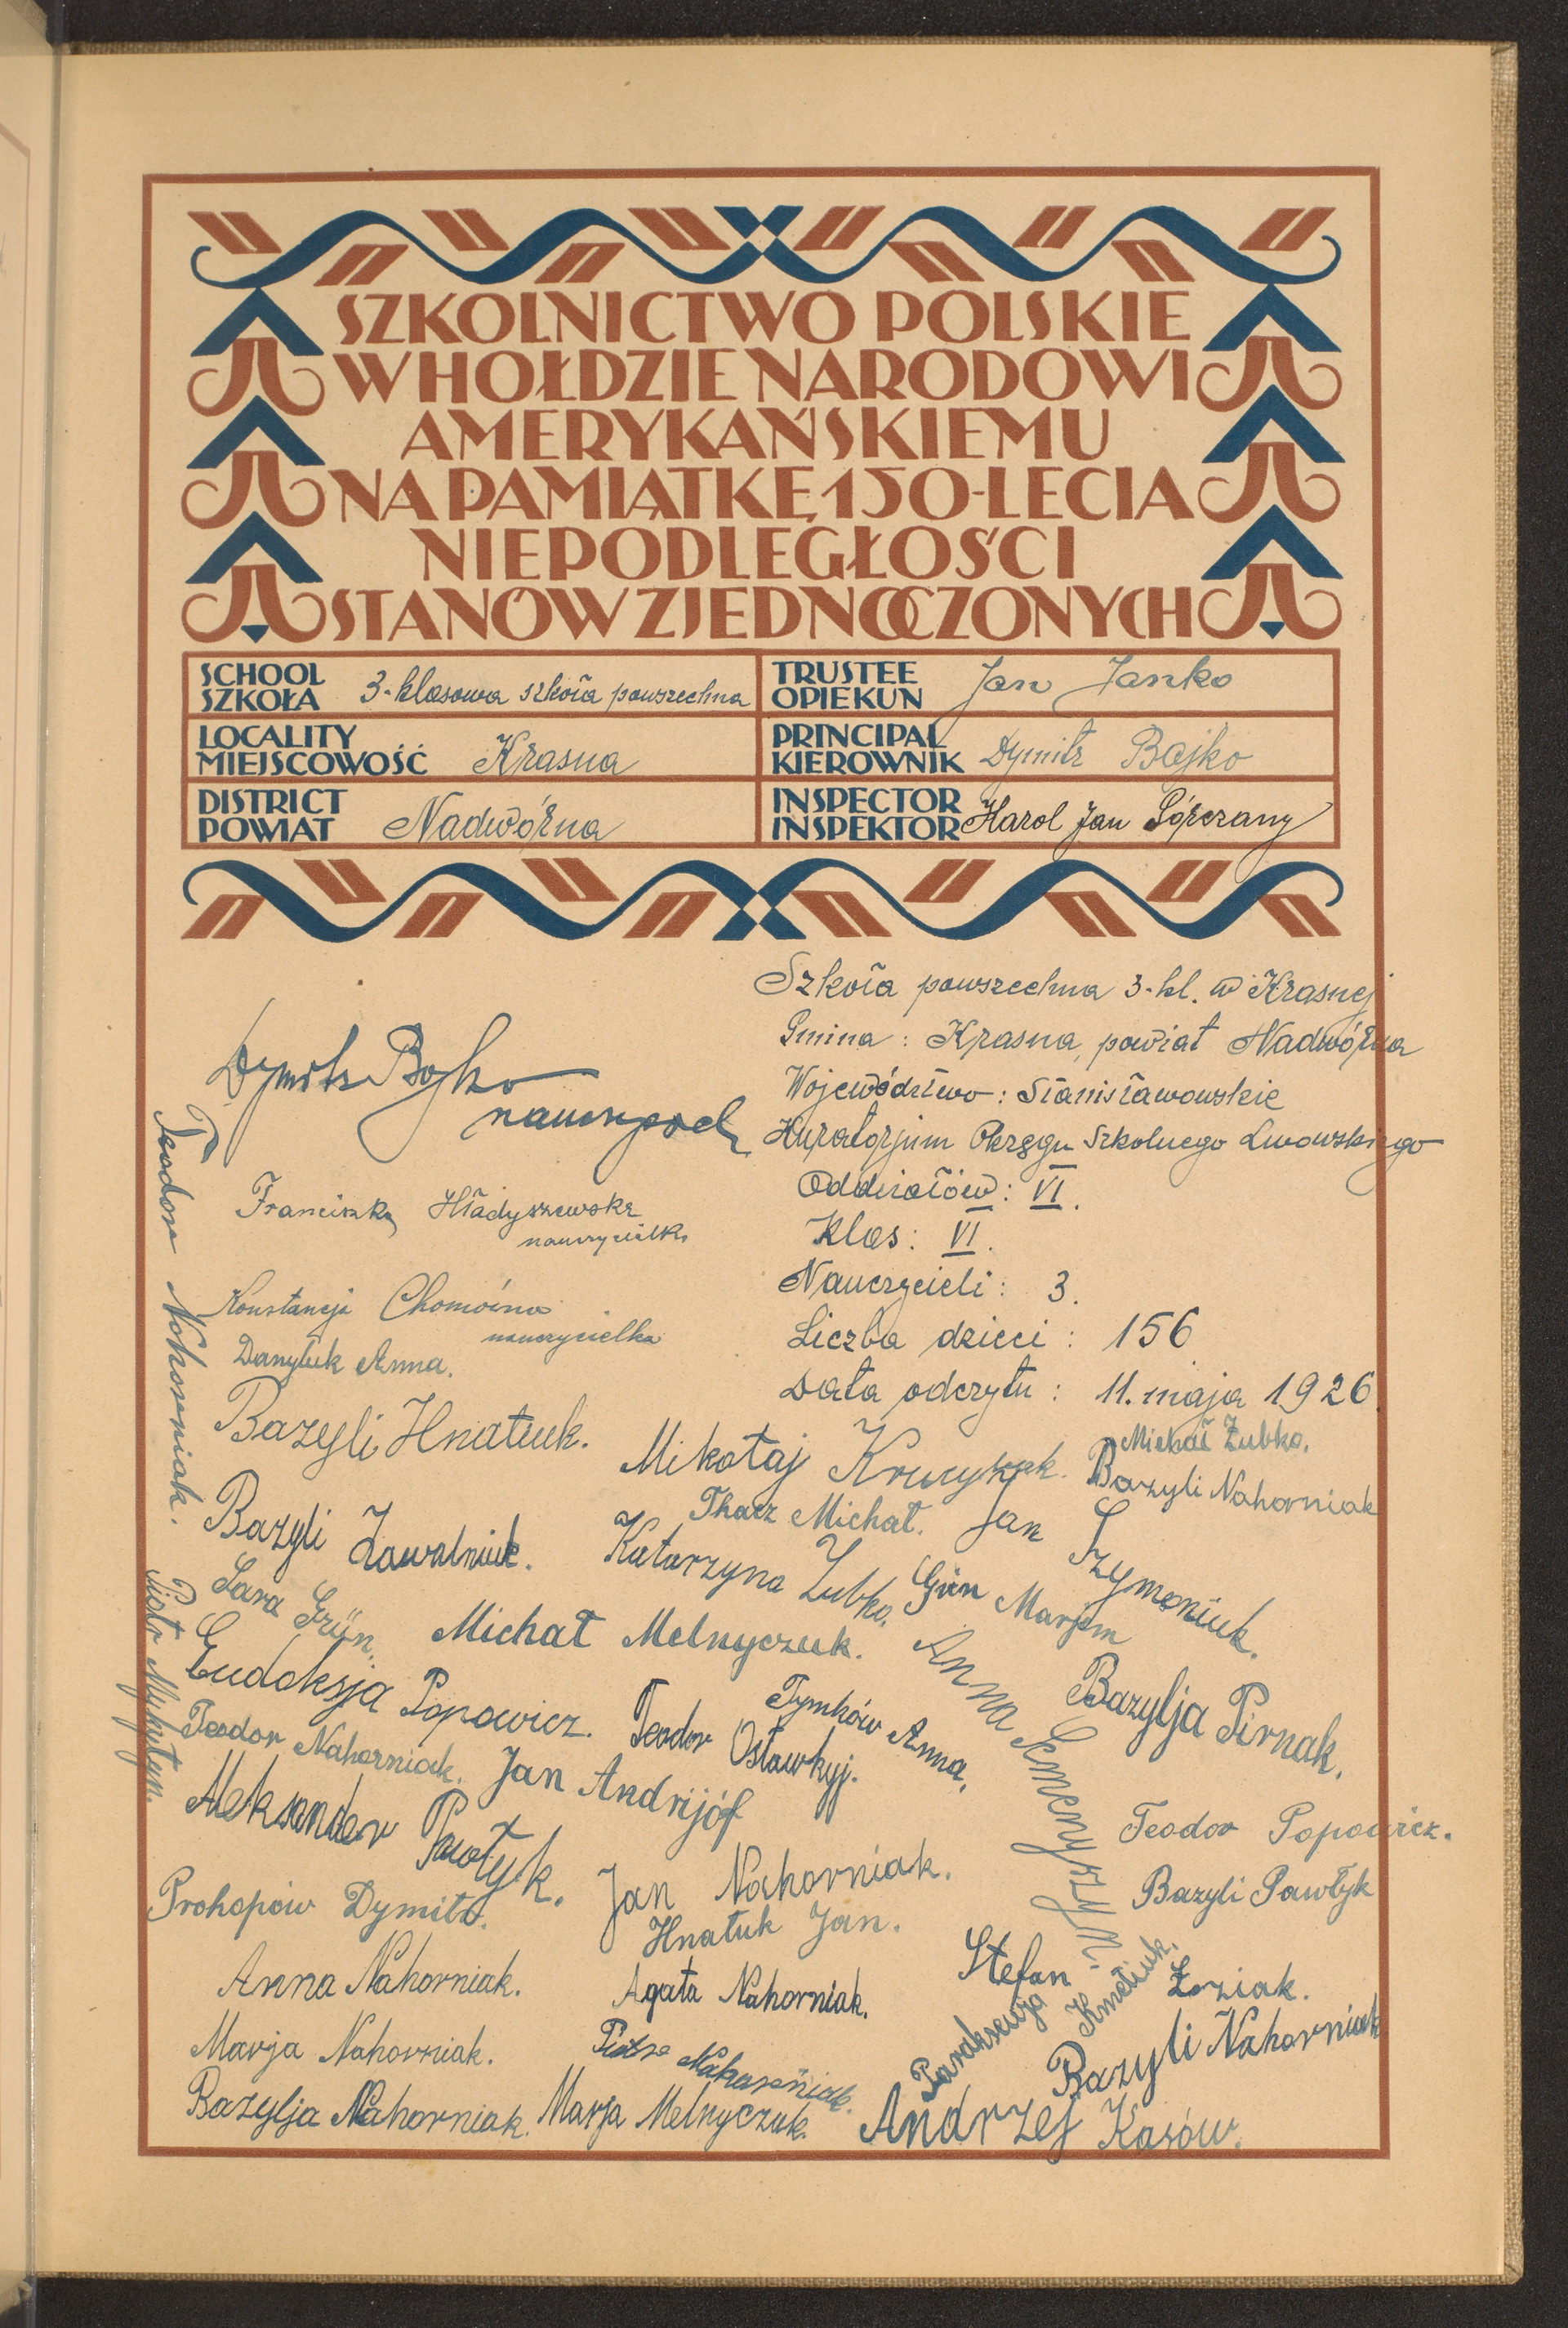 SZKOLNICTWO POLSKIE
W HOŁDZIE NARODOWI
AMERYKAŃSKIEMU
NA PAMIĄTKĘ 150-LECIA
NIEPODLEGŁOŚCI
STANÓW ZJEDNOCZONYCH
SCHOOL
SZKOŁA 3-klasowa szkoła powszechna
TRUSTEE
OPIEKUN Jan Janko
LOCALITY
MIEJSCOWOŚĆ Krasna
PRINCIPAL
KIEROWNIK Dymitr Bojko
DISTRICT
POWIAT Nadwórna
INSPECTOR
INSPEKTOR Karol Jan
Szkoła powszechna 3-kl. w Krasnej
Gmina: Krasna, powiat Nadwórna
Województwo: Stanisławowskie
Kuratorjum Okręgu Szkolnego Lwowskiego
Oddziałów: VI.
Klas: VI.
Nauczycieli: 3.
Liczba dzieci: 156
Data odczytu: 11. maja 1926.
Dymitr Bojko
Franciszka Hładyszewska
nauczycielka
Konstancja
nauczycielka
Danyluk Anna.
Teodor Nahorniak.
Bazyli Hnatiuk.
Mikołaj
Michał Zubko.
Bazyli Nahorniak
Bazyli Zawalniuk.
Tkacz Michał.
Jan Szymoniuk.
Katarzyna Zubko.
Sara Grün.
Grün Marjem
Michał Melnyczuk.
Piotr Mykytyn.
Eudoksja Popowicz.
Tymków Anna.
Anna
Bazylja Pirnak.
Teodor Nahorniak.
Teodor Ostawkyj.
Jan Andrijów
Aleksander Pawłyk.
Teodor Popowicz.
Bazyli Pawłyk
Prokopów Dymitr.
Jan Nahorniak.
Hnatuk Jan.
Anna Nahorniak.
Agata Nahorniak.
Stefan
Paraksewja Kmetiuk.
Marja Nahorniak.
Piotr Nahorniak.
Bazyli Nahorniak
Bazylja Nahorniak.
Marja Melnyczuk.
Andrzej Kasów.